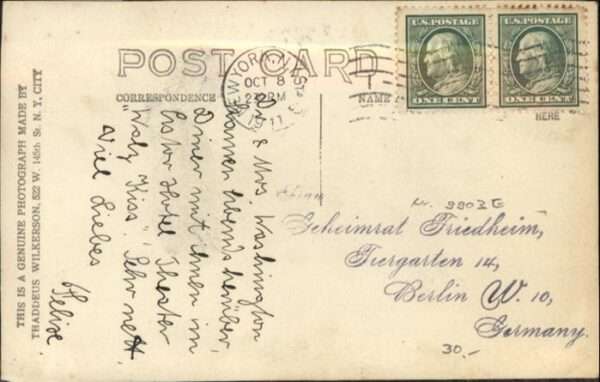 THIS IS A GENUINE PHOTOGRAPH MADE BY
THADDEUS WILKERSON, 522 W. 145th St. N. Y. CITY
POST CARD
CORRESPONDENCE
NAME
HERE
NEW YORK, N.Y.
OCT 8
2 PM
1911
U.S. POSTAGE
ONE CENT
U.S. POSTAGE
ONE CENT
& Mrs. Washington
kamen abends herüber,
Diner mit ihnen im
Astor Hotel Theater
"Walz Kiss". Sehr nett
Viel Liebes
Felix
9903 E
Geheimrat Friedheim,
Tiergarten 14,
Berlin W. 10,
Germany.
30,-